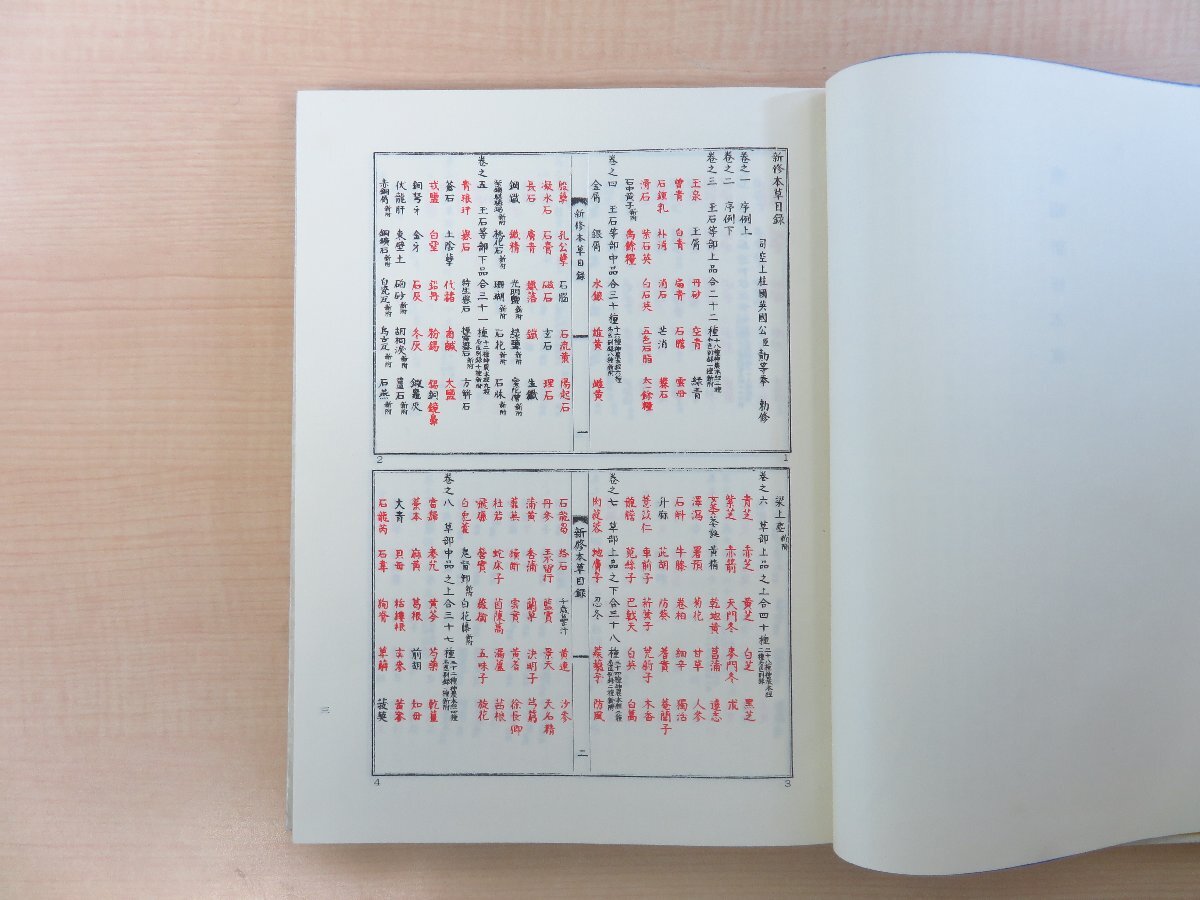 新修本草目録
司空上柱國英國公臣勣等奉 勅修
卷之一 序例上
卷之二 序例下
卷之三 玉石等部上品合二十二種
玉泉 玉屑 丹砂 空青 緑青
曾青 白青 扁青 石膽 雲母
石鍾乳 朴消 消石 芒消 礬石
滑石 紫石英 白石英 五色石脂 太一餘糧
石中黄子新附 禹餘糧
卷之四 玉石等部中品合三十種
金屑 銀屑 水銀 雄黄 雌黄
新修本草目録 一
殷孽 孔公孽 石腦 石流黄 陽起石
凝水石 石膏 磁石 玄石 理石
長石 膚青 鐵落 鐵 生鐵
鋼鐵 鐵精 光明鹽新附 緑鹽新附 密陀僧新附
桃花石新附 珊瑚新附 石花新附 石牀新附
卷之五 玉石等部下品合三十一種
青琅玕 礜石 特生礜石 握雪礜石新附 方解石
蒼石 土陰孽 代赭 鹵鹹 大鹽
戎鹽 白堊 鉛丹 粉錫 錫銅鏡鼻
銅弩牙 金牙 石灰 冬灰 鍛竈灰
伏龍肝 東壁土 硇砂新附 胡桐淚新附 薑石新附
赤銅屑新附 銅鑛石新附 白瓷瓦新附 烏古瓦新附 石燕新附
2
1
梁上塵新附
卷之六 草部上品之上合四十種
青芝 赤芝 黄芝 白芝 黑芝
紫芝 赤箭 天門冬 麥門冬 朮
女萎 萎蕤 黄精 乾地黄 菖蒲 遠志
澤瀉 署預 菊花 甘草 人參
石斛 牛膝 卷柏 細辛 獨活
升麻 茈胡 防葵 蓍實 菴蕳子
薏苡仁 車前子 菥蓂子 茺蔚子 木香
龍膽 菟絲子 巴戟天 白英 白蒿
卷之七 草部上品之下合三十八種
肉蓯蓉 地膚子 忍冬 蒺藜子 防風
新修本草目録 二
石龍芻 絡石 千歲虆汁 黄連 沙參
丹參 王不留行 藍實 景天 天名精
蒲黄 香蒲 蘭草 決明子 芎藭
蘼蕪 續斷 雲實 黄耆 徐長卿
杜若 蛇床子 茵陳蒿 漏蘆 茜根
飛廉 營實 薇銜 五味子 旋花
白兔藿 鬼督郵新附 白花藤新附
卷之八 草部中品之上合三十七種
當歸 秦艽 黄芩 芍藥 乾薑
藁本 麻黄 葛根 前胡 知母
大青 貝母 栝樓根 玄參 苦參
石龍芮 石韋 狗脊 萆薢 菝葜
4
3
三